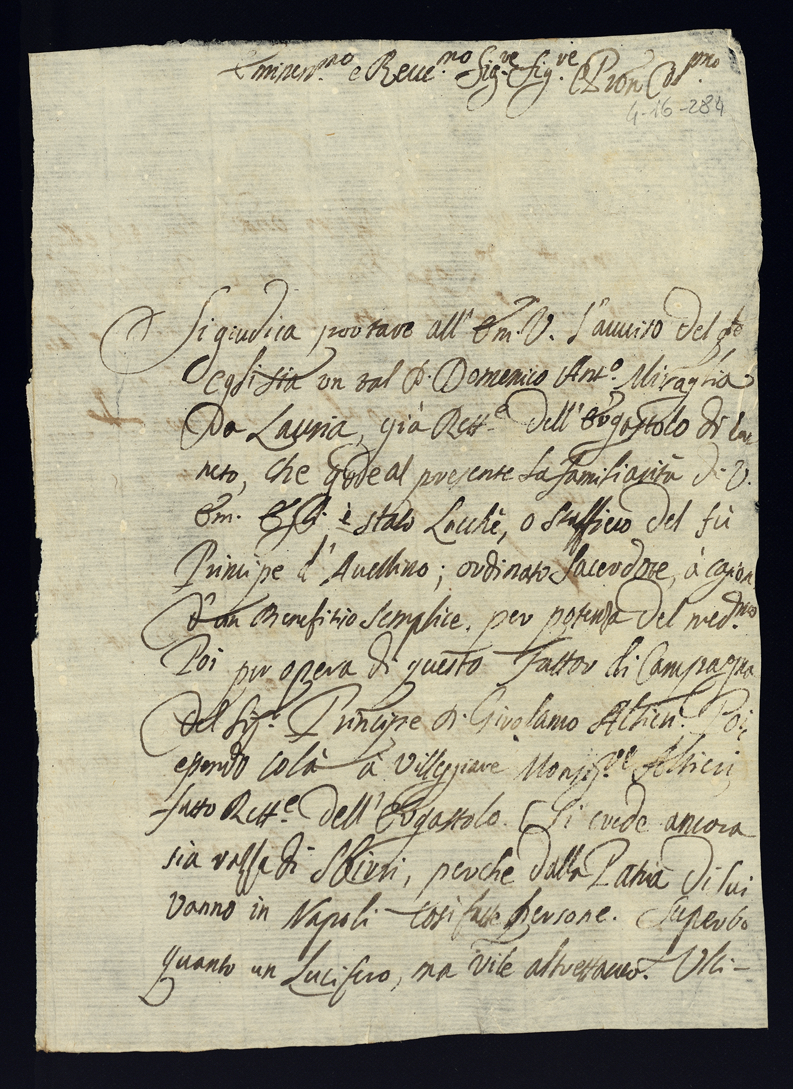 Eminen.mo e Reue.mo Sig.re Sig.re e Pron Col.mo
4-16-284
Si giudica portare all' Em. V. l'auuiso del
egli sia un tal D. Domenico Ant.o Miraglia
Da Lauria, già Rett.e dell' Ergastolo di
neto, che gode al presente la familiarità di V.
Em. Egli è stato Lacchè, o Staffiero del fù
Principe d'Auellino; ordinato Sacerdote, à cagion
d'un Benefitio semplice, per potenza del med.mo
Poi per opera di questo Fattor di Campagna
del Sig.r Principe D. Girolamo Altieri. Poi,
essendo colà à Villeggiare Monsig.re Altieri,
fatto Rett.e dell' Ergastolo. Si crede ancora
sia razza di Sbirri, perche dalla Patria di lui
vanno in Napoli così fatte Persone. Superbo
quanto un Lucifero, ma vile altrettanto. Ulti-